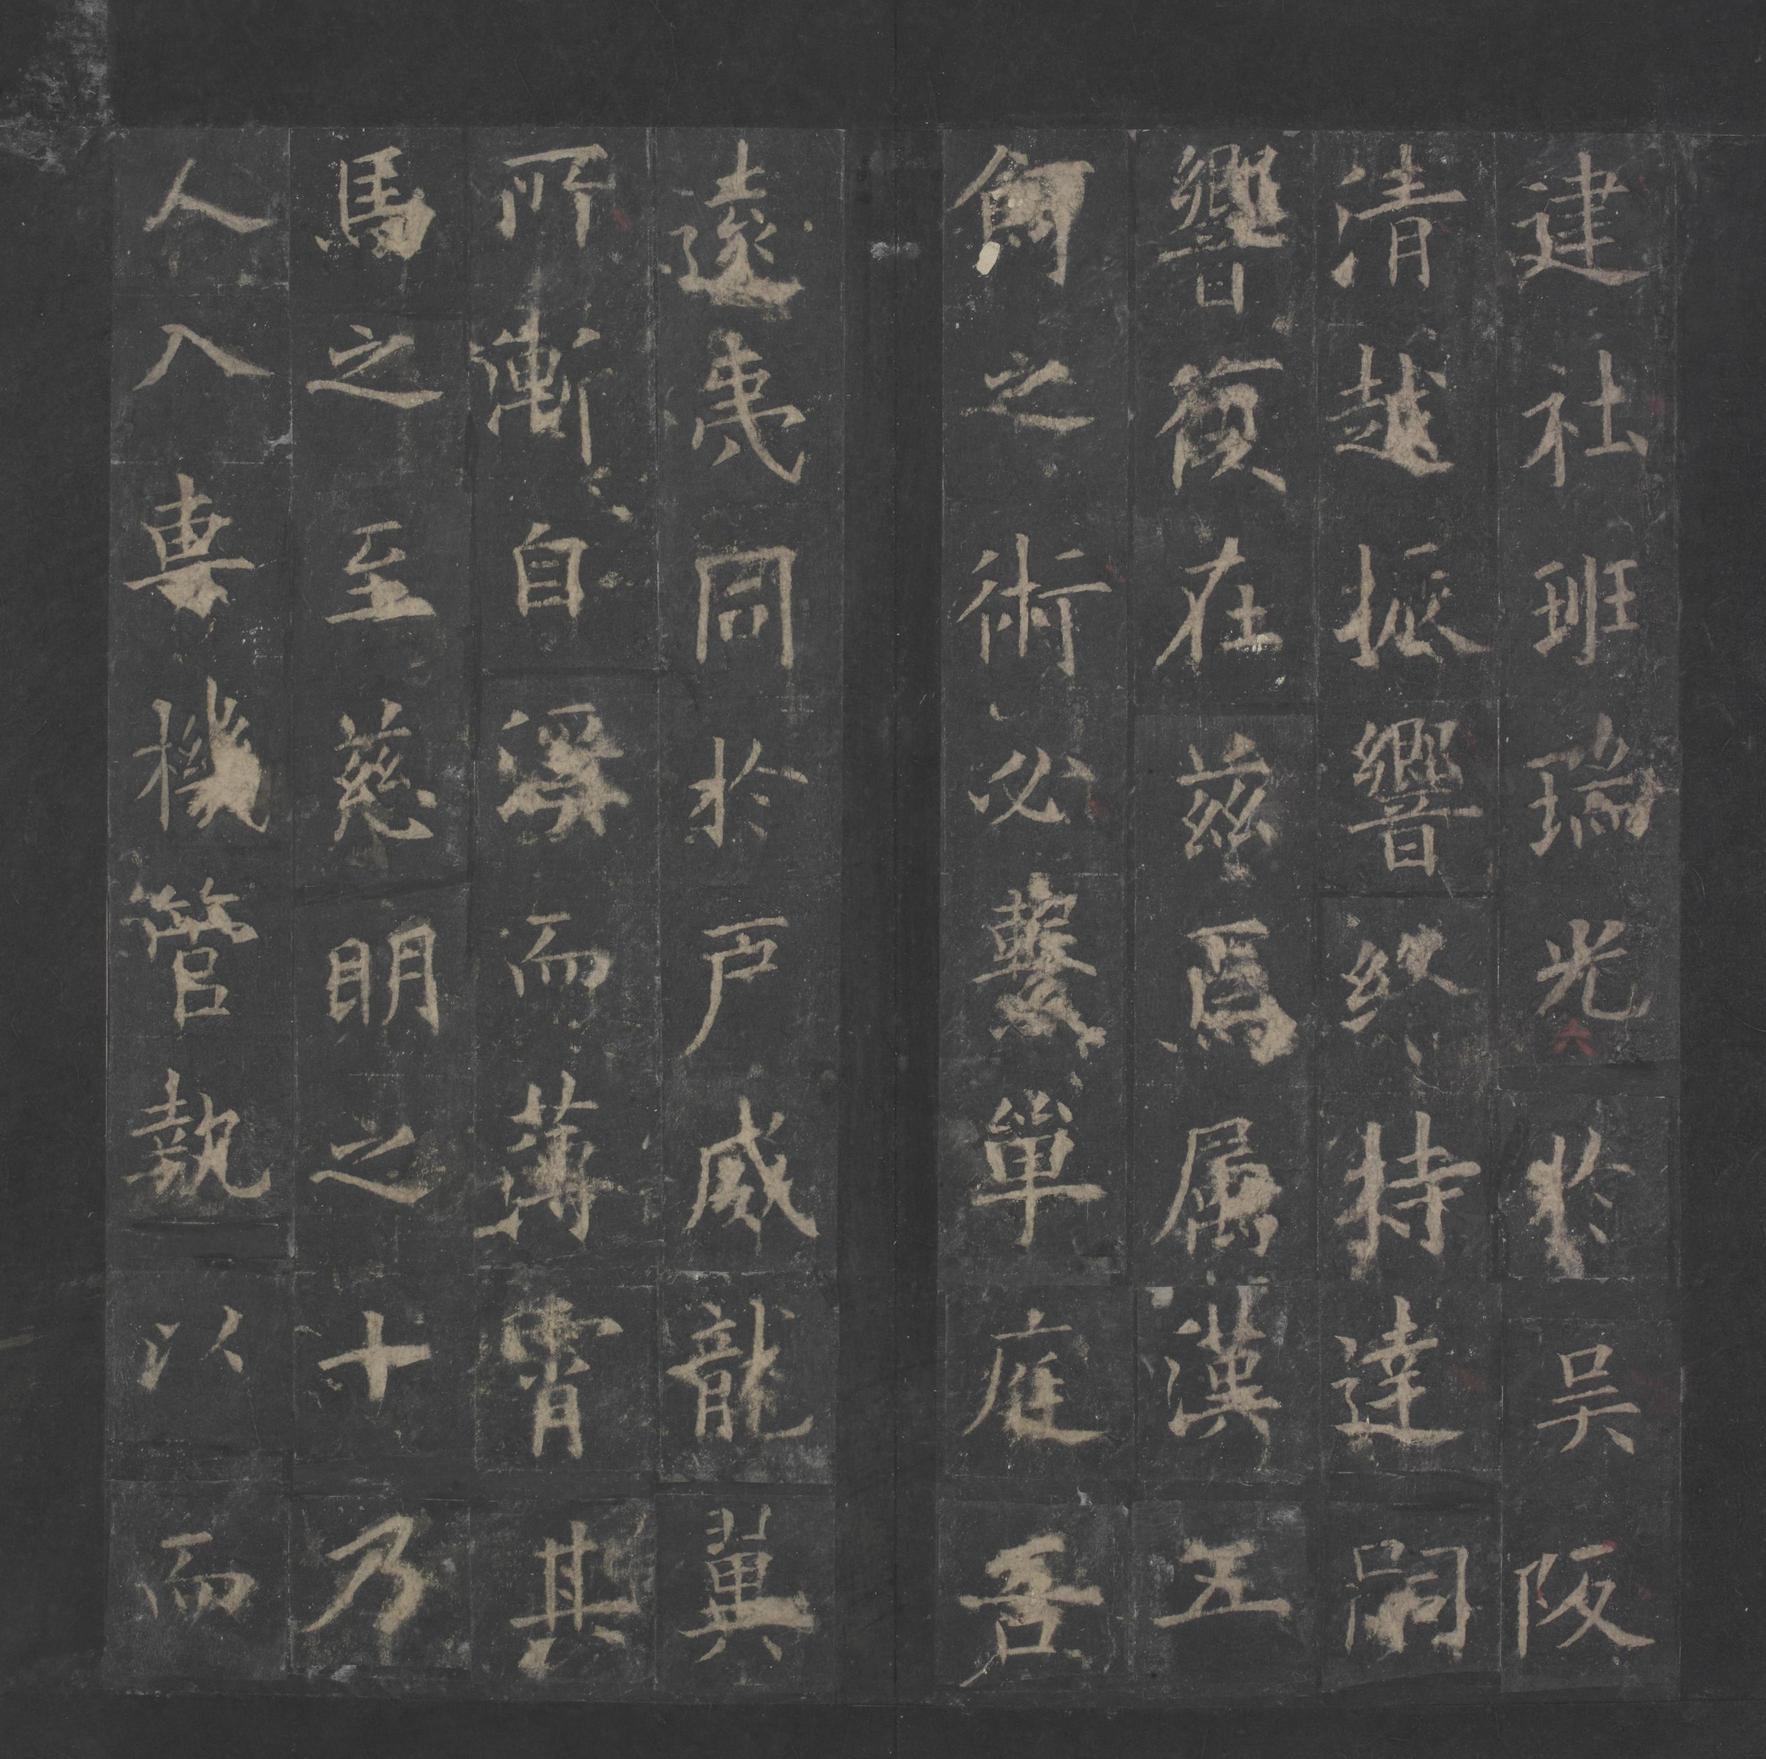 建社班瑞光於吳阪
清越振響終特達嗣
響復在茲為属漢五
餌之術必繫單庭吾
遠夷同於戶威龍翼
所漸自溟而薄霄其
馬之至慈明之十乃
人入專機管執以而